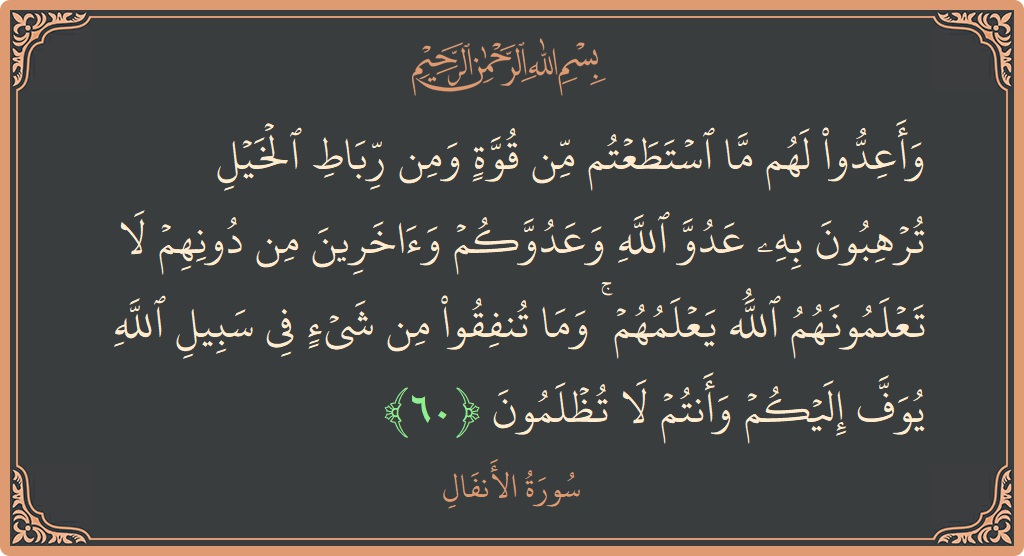 بِسْمِ اللهِ الرَّحْمٰنِ الرَّحِيْمِ
وَأَعِدُّوا۟ لَهُم مَّا ٱسْتَطَعْتُم مِّن قُوَّةٍ وَمِن رِّبَاطِ ٱلْخَيْلِ
تُرْهِبُونَ بِهِۦ عَدُوَّ ٱللَّهِ وَعَدُوَّكُمْ وَءَاخَرِينَ مِن دُونِهِمْ لَا
تَعْلَمُونَهُمُ ٱللَّهُ يَعْلَمُهُمْ ۚ وَمَا تُنفِقُوا۟ مِن شَىْءٍ فِى سَبِيلِ ٱللَّهِ
يُوَفَّ إِلَيْكُمْ وَأَنتُمْ لَا تُظْلَمُونَ ﴿٦٠﴾
سُورَةُ الأَنفَالِ